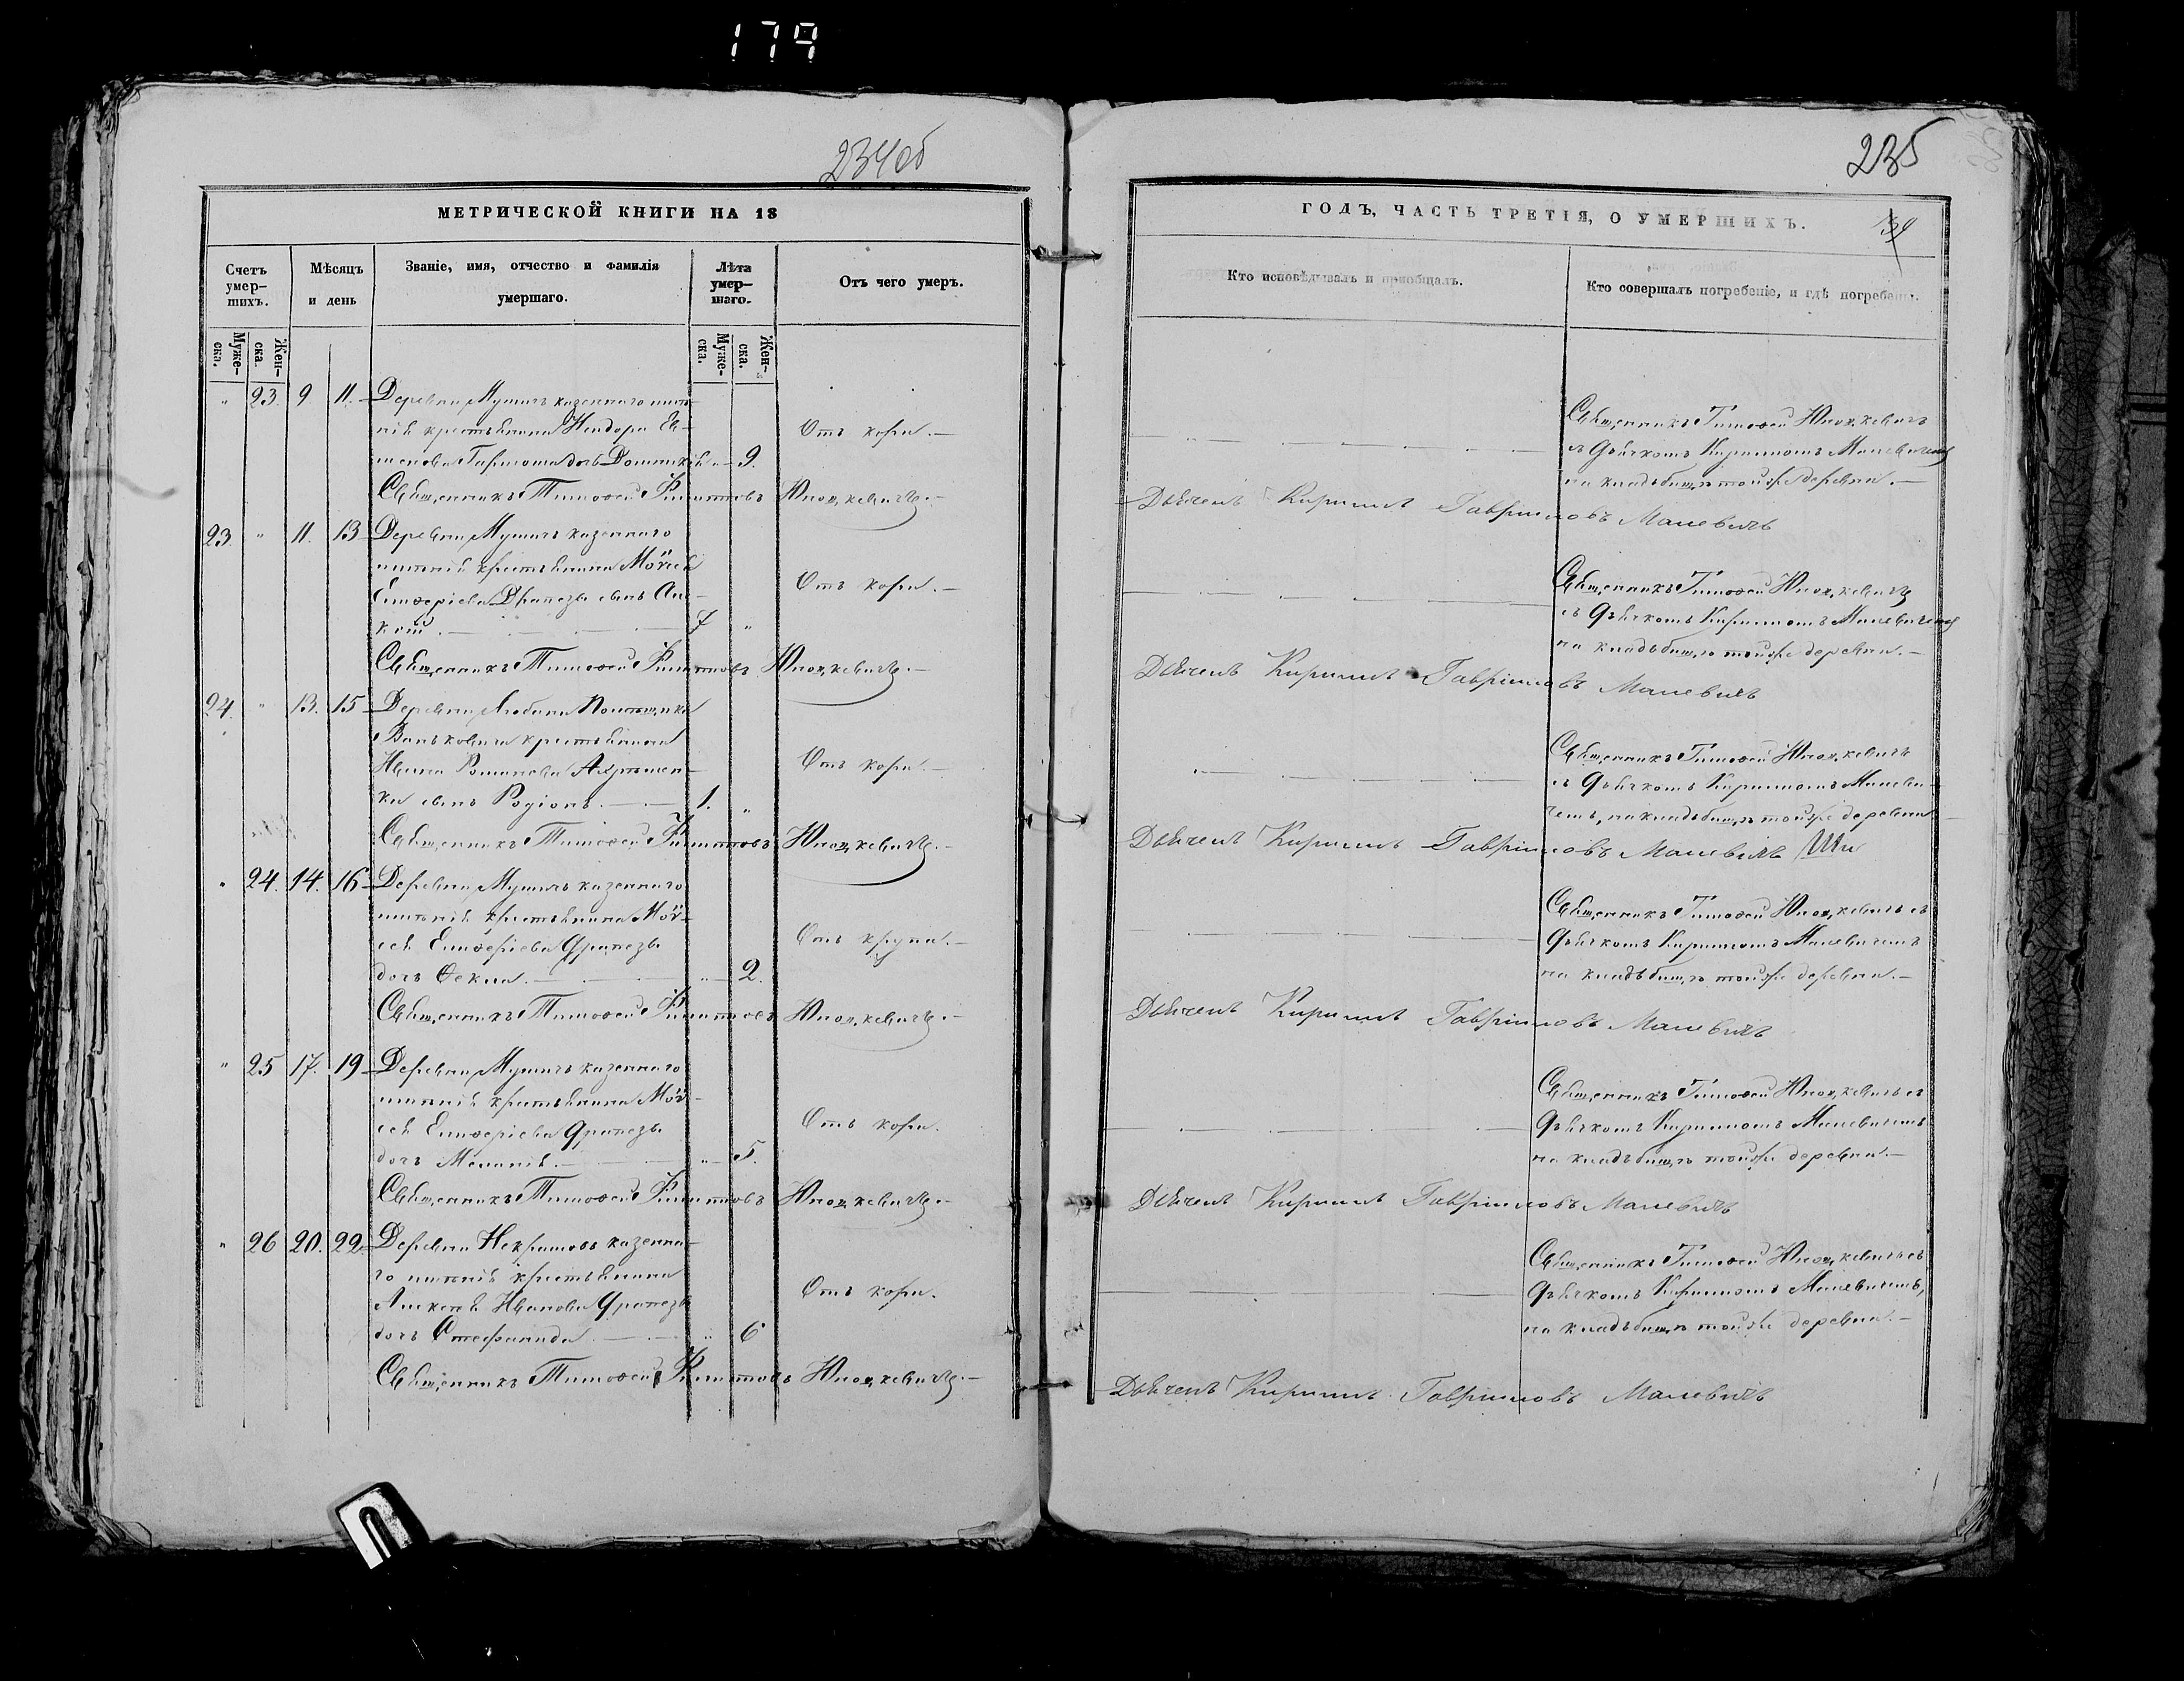 179
234об
МЕТРИЧЕСКОЙ КНИГИ НА 18
Счетъ умер-шихъ.
Мѣсяцъ и день
Званіе, имя, отчество и фамилія умершаго.
Лѣта умер-шаго.
Отъ чего умеръ.
Муже-ска.
Жен-ска
Муже-ска.
Жен-ска.
" 23. 9 11. Деревни Мушичъ казеннаго имѣ-
нія крестьянина
дочь 9.
Отъ кори.
Священникъ Тимоѳей Филиповъ Юношкевичъ.
23. " 11. 13 Деревни Мушичъ казеннаго
имѣнія крестьянина Моѵсея
Елиѳеріева Драпезы сынъ
7 "
Отъ кори.
Священникъ Тимоѳей Филиповъ Юношкевичъ.
24. " 13. 15 Деревни Любани Помѣщика
Ваньковича крестьянина
Ивана Романова
ки сынъ Родіонъ. 1. "
Отъ кори.
Священникъ Тимоѳей Филиповъ Юношкевичъ.
" 24. 14. 16 Деревни Мушичъ казеннаго
имѣнія крестьянина Моѵ-
сея Елиѳеріева Драпезы
дочь Ѳекла. " 2.
Отъ крупа.
Священникъ Тимоѳей Филиповъ Юношкевичъ.
" 25 17. 19 Деревни Мушичъ казеннаго
имѣнія крестьянина Моѵ-
сея Елиѳеріева Драпезы
дочь Меланія. " 5.
Отъ кори.
Священникъ Тимоѳей Филиповъ Юношкевичъ.
" 26 20. 22. Деревни Некрашовъ казенна-
го имѣнія крестьянина
Алексѣя Иванова Драпезы
дочь Стефанида " 6
Отъ кори.
Священникъ Тимоѳей Филиповъ Юношкевичъ.
235
ГОДЪ, ЧАСТЬ ТРЕТІЯ, О УМЕРШИХЪ.
Кто исповѣдывалъ и пріобщалъ.
Кто совершалъ погребеніе, и гдѣ погребены.
Священникъ Тимоѳей Юношкевичъ
съ дьячкомъ Кириломъ Малевичемъ
на кладьбищѣ тойже деревни.
Дьячекъ Кирилъ Гавріиловъ Малевичъ
Священникъ Тимоѳей Юношкевичъ
съ дьячкомъ Кириломъ Малевичемъ
на кладьбищѣ тойже деревни.
Дьячекъ Кирилъ Гавріиловъ Малевичъ
Священникъ Тимоѳей Юношкевичъ
съ дьячкомъ Кириломъ Малеви-
чемъ, на кладьбищѣ тойже деревни
Дьячекъ Кирилъ Гавріиловъ Малевичъ
Священникъ Тимоѳей Юношкевичъ съ
дьячкомъ Кириломъ Малевичемъ
на кладьбищѣ тойже деревни.
Дьячекъ Кирилъ Гавріиловъ Малевичъ
Священникъ Тимоѳей Юношкевичъ съ
дьячкомъ Кириломъ Малевичемъ
на кладьбищѣ тойже деревни.
Дьячекъ Кирилъ Гавріиловъ Малевичъ
Священникъ Тимоѳей Юношкевичъ съ
дьячкомъ Кириломъ Малевичемъ,
на кладьбищѣ тойже деревни.
Дьячекъ Кирилъ Гавриловъ Малевичъ